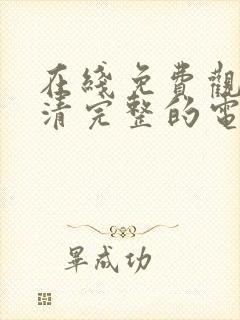 在綫免費觀
清完整的電
畢成功